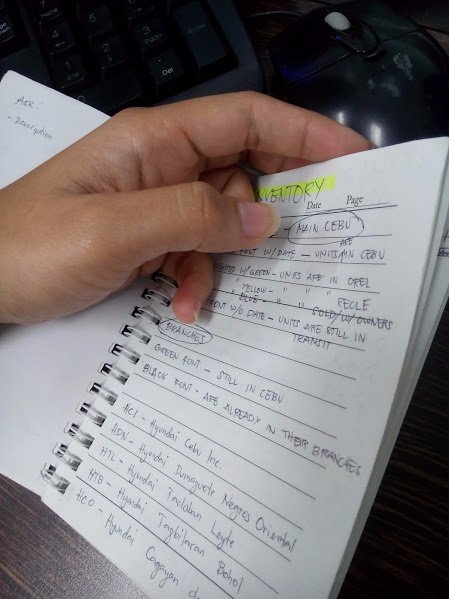 Ask:
- Description
INVENTORY
Date Page
- MAIN CEBU
FONT W/ DATE - UNITS ARE IN CEBU
W/ GREEN - UNITS ARE IN OREL
" YELLOW - " " " RECLE
" BLUE - " " SOLD/W/ OWNERS
FONT W/O DATE - UNITS ARE STILL IN
TRANSIT
BRANCHES
GREEN FONT - STILL IN CEBU
BLACK FONT - ARE ALREADY IN THEIR BRANCHES
HCI - Hyundai Cebu Inc.
HDN - Hyundai Dumaguete Negros Oriental
HTL - Hyundai Tacloban Leyte
HTB - Hyundai Tagbilaran Bohol
HCO - Hyundai Cagayan de
7
8
9
3
Del